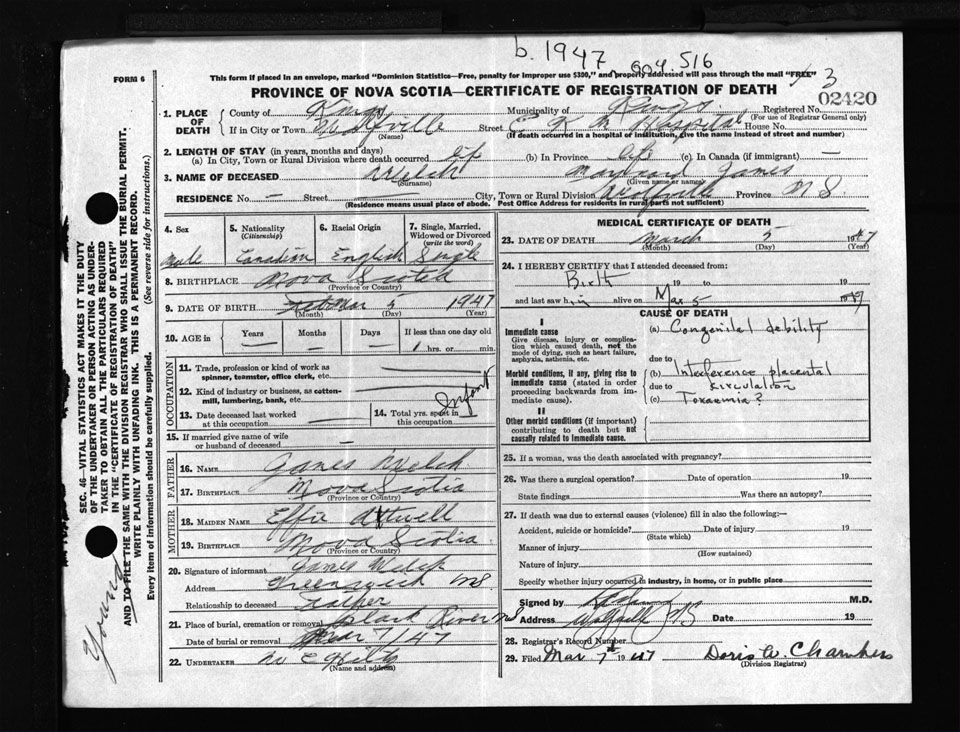 b. 1947 904 516
FORM 6
This form if placed in an envelope, marked "Dominion Statistics—Free, penalty for improper use $300," and properly addressed will pass through the mail "FREE" 3
PROVINCE OF NOVA SCOTIA—CERTIFICATE OF REGISTRATION OF DEATH
02420
1. PLACE OF DEATH County of Kings Municipality of Kings Registered No.
(For use of Registrar General only)
If in City or Town Wolfville Street E K M Hospital House No.
(Name) (If death occurred in a hospital or institution, give the name instead of street and number)
2. LENGTH OF STAY (in years, months and days)
(a) In City, Town or Rural Division where death occurred life (b) In Province life (c) In Canada (if immigrant) —
3. NAME OF DECEASED Welch Maynard James
(Surname) (Given name or names)
RESIDENCE No. — Street City, Town or Rural Division Province N S.
(Residence means usual place of abode. Post Office Address for residents in rural parts not sufficient)
4. Sex 5. Nationality 6. Racial Origin 7. Single, Married,
(Citizenship) Widowed or Divorced
(write the word)
Male Canadian English Single
8. BIRTHPLACE Nova Scotia
(Province or Country)
9. DATE OF BIRTH Mar 5 1947
(Month) (Day) (Year)
10. AGE in Years Months Days If less than one day old
— — — 1 hrs. or min.
OCCUPATION
11. Trade, profession or kind of work as
spinner, teamster, office clerk, etc.
12. Kind of industry or business, as cotton-
mill, lumbering, bank, etc.
13. Date deceased last worked
at this occupation —
14. Total yrs. spent in
this occupation
Infant
15. If married give name of wife
or husband of deceased —
FATHER
16. NAME James Welch
17. BIRTHPLACE Nova Scotia
(Province or Country)
MOTHER
18. MAIDEN NAME Effie Atwell
19. BIRTHPLACE Nova Scotia.
(Province or Country)
20. Signature of informant James Welch
Address Greenwich NS
Relationship to deceased Father
21. Place of burial, cremation or removal Black River NS
Date of burial or removal Mar 7/47
22. UNDERTAKER
(Name and address)
MEDICAL CERTIFICATE OF DEATH
23. DATE OF DEATH March 5 1947
(Month) (Day) (Year)
24. I HEREBY CERTIFY that I attended deceased from:
Birth 19 to 19
and last saw him alive on Mar 5 1947
CAUSE OF DEATH
I
Immediate cause (a) Congenital debility
Give disease, injury or complica-
tion which caused death, not the
mode of dying, such as heart failure,
asphyxia, asthenia, etc.
due to
Morbid conditions, if any, giving rise to
immediate cause (stated in order
proceeding backwards from im-
mediate cause).
(b) Interference placental
due to circulation
(c) Toxaemia?
II
Other morbid conditions (if important)
contributing to death but not
causally related to immediate cause.
25. If a woman, was the death associated with pregnancy?
26. Was there a surgical operation? Date of operation 19
State findings Was there an autopsy?
27. If death was due to external causes (violence) fill in also the following:—
Accident, suicide or homicide? Date of injury 19
(State which)
Manner of injury
(How sustained)
Nature of injury
Specify whether injury occurred in industry, in home, or in public place
Signed by M.D.
Address Wolfville NS Date 19
28. Registrar's Record Number
29. Filed Mar 7 1947 Doris W. Chambers
(Division Registrar)
SEC. 46—VITAL STATISTICS ACT MAKES IT THE DUTY
OF THE UNDERTAKER OR PERSON ACTING AS UNDER-
TAKER TO OBTAIN ALL THE PARTICULARS REQUIRED
IN THE "CERTIFICATE OF REGISTRATION OF DEATH"
AND TO FILE THE SAME WITH THE DIVISION REGISTRAR WHO SHALL ISSUE THE BURIAL PERMIT.
WRITE PLAINLY WITH UNFADING INK. THIS IS A PERMANENT RECORD.
Every item of information should be carefully supplied. (See reverse side for instructions.)
Young